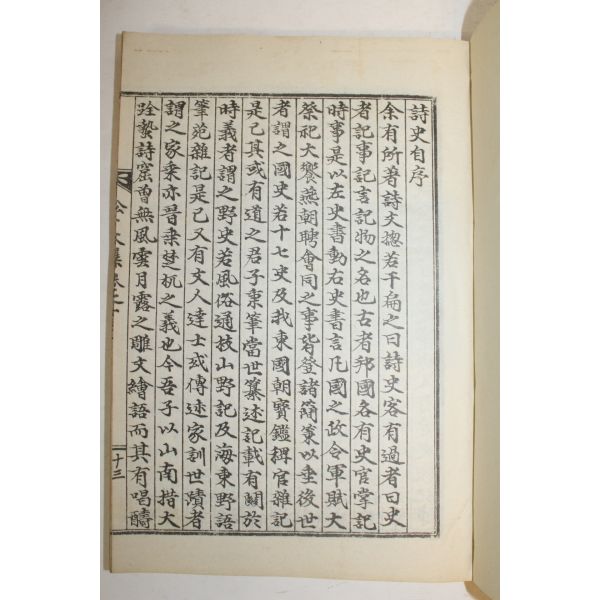 詩史自序
余有所著詩文揔若干扁之曰詩史客有過者曰史
者記事記言記物之名也古者邦國各有史官掌記
時事是以左史書動右史書言凡國之政令軍賦大
祭祀大饗燕朝聘會同之事皆登諸簡策以垂後世
者謂之國史若十七史及我東國朝寶鑑稗官雜記
是已其或有道之君子秉筆當世纂述記載有關於
時義者謂之野史若風俗通技山野記及海東野語
筆苑雜記是已又有文人達士或傳述家訓世蹟者
謂之家乘亦晉乘楚杌之義也今吾子以山南措大
跧蟄詩窟曾無風雲月露之雕文繪語而其有唱酬
文集卷之
十三